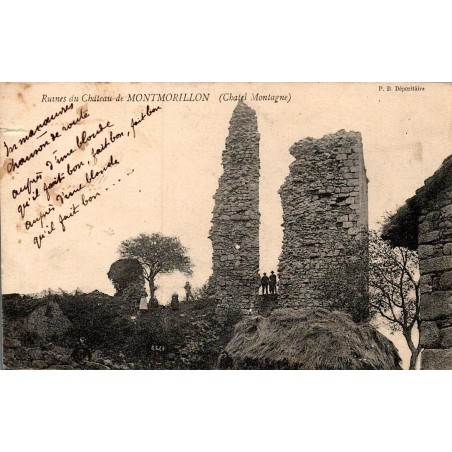 Ruines du Château de MONTMORILLON (Chatel Montagne)
P. B. Dépositaire
En
chanson de route
auprès d'une blonde
qu'il fait bon, fait bon, fait bon
auprès d'une blonde
qu'il fait bon . . . .